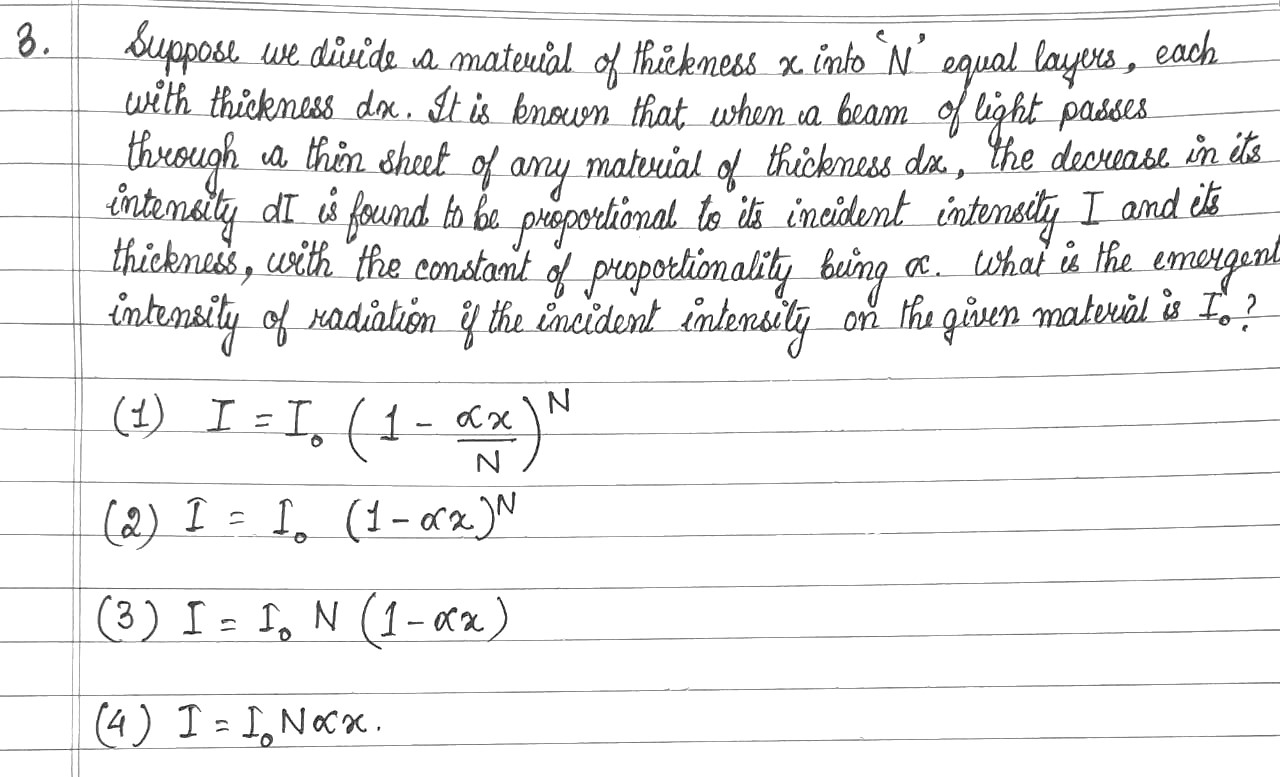 3. Suppose we divide a material of thickness x into 'N' equal layers, each
with thickness dx. It is known that when a beam of light passes
through a thin sheet of any material of thickness dx, the decrease in its
intensity dI is found to be proportional to its incident intensity I and its
thickness, with the constant of proportionality being α. What is the emergent
intensity of radiation if the incident intensity on the given material is I₀?
(1) I = I₀ (1 - αx/N)^N
(2) I = I₀ (1 - αx)^N
(3) I = I₀ N (1 - αx)
(4) I = I₀ N αx.